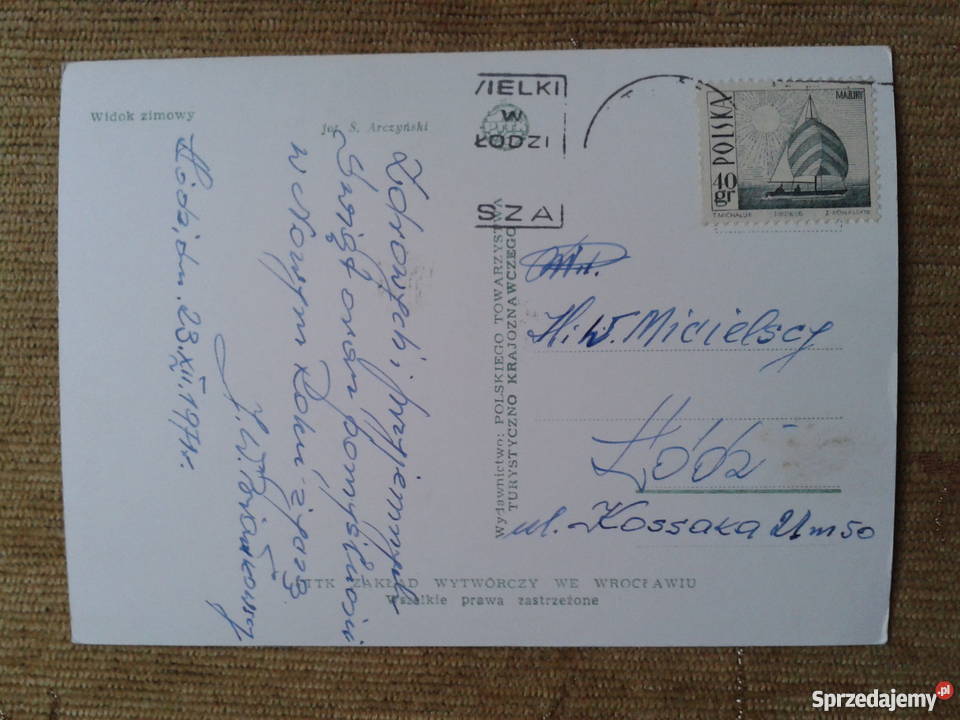 Widok zimowy
fot. S. Arczyński
Zdrowych i przyjemnych
Świąt oraz pomyślności
w Nowym Roku życzą
J. W.
Łódź, dn. 23.XII.1971r.
WIELKI
W
ŁODZI
SZA
POLSKA
40 gr
MAZURY
T. MICHALUK
Wydawnictwo: POLSKIEGO TOWARZYSTWA
TURYSTYCZNO KRAJOZNAWCZEGO
H. W. Micielscy
Łódź
ul. Kossaka 21 m 50
PTTK ZAKŁAD WYTWÓRCZY WE WROCŁAWIU
Wszelkie prawa zastrzeżone
Sprzedajemy.pl